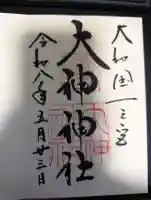 大和国一之宮
大神神社
令和八年五月廿三日